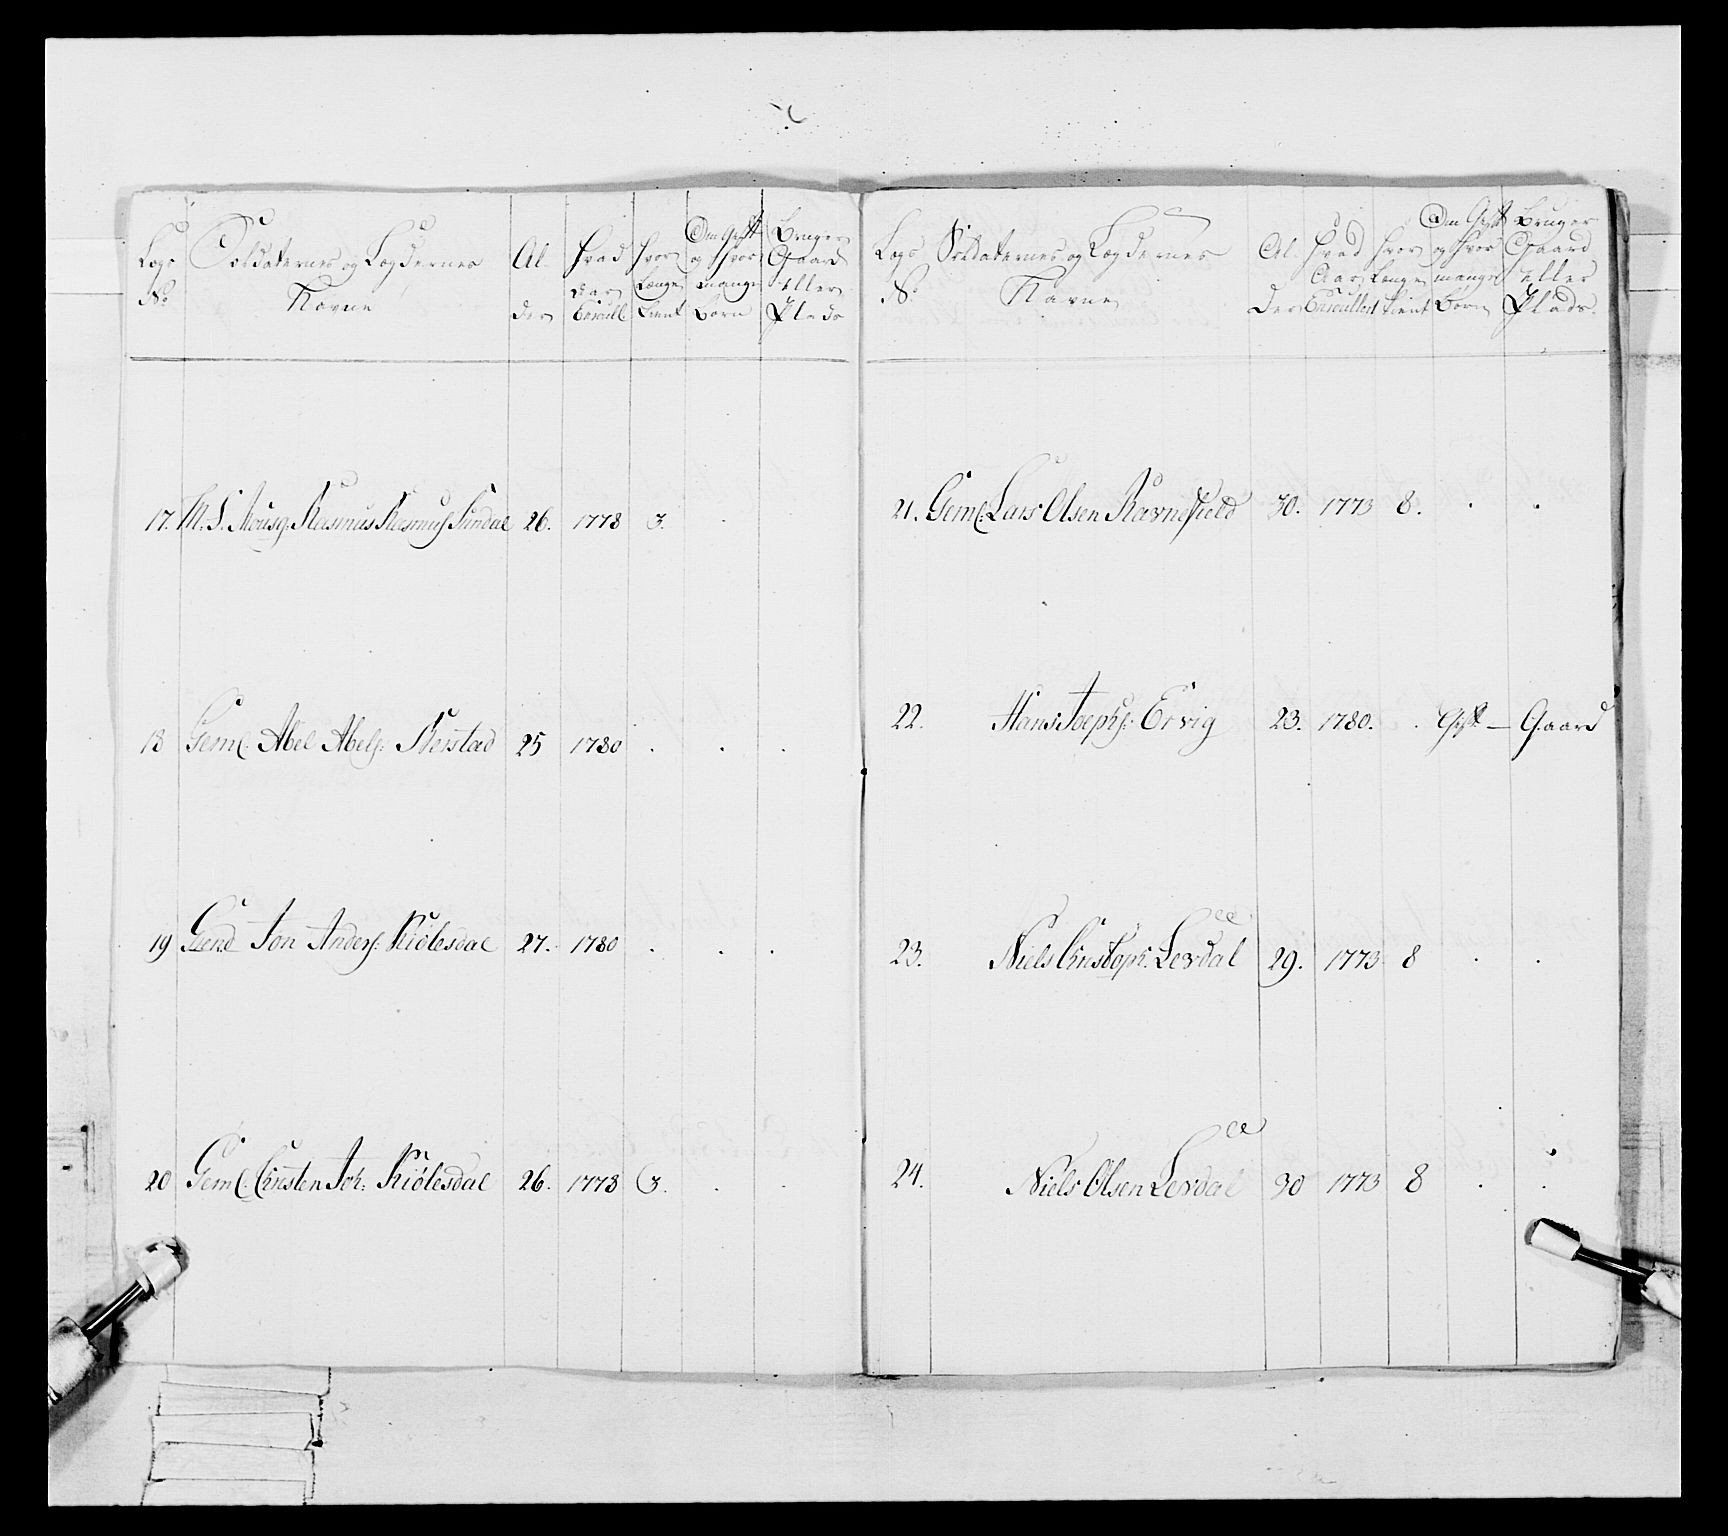 Legs No
Soldaternes og Lægdernes Navne
Alder
Hvad Aar Enroull
Hvor Længe tient
Om Gift og hvor mange Børn
Bruger Gaard eller Plads
17. Rasmus Rasmuss Sundal 26. 1778 3.
18 Geml. Abel Abels: 25 1780 . . .
19 Jon Anders: Kiölesdal 27. 1780 . . .
20 Geml. Christen Joh: Kiölesdal 26. 1778 3. . .
Legs No
Soldaternes og Lægdernes Navne
Alder
Hvad Aar Enroullert
Hvor Længe tient
Om Gift og hvor mange Børn
Bruger Gaard eller Plads.
21. Geml. Lars Olsen Ravnefield 30. 1773 8. . .
22. Hans Joephs: Ervig 23. 1780. . Gift — Gaard
23. Niels Christoph: Levdal 29. 1773 8 . .
24. Niels Olsen Levdal 30 1773 8 . .